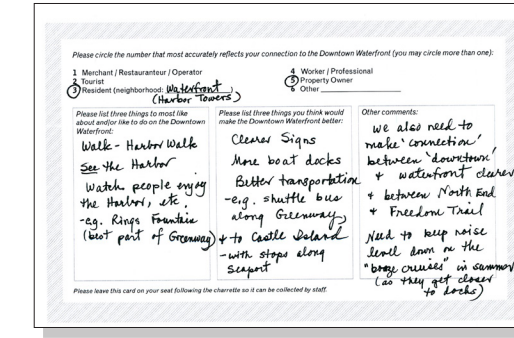 Please circle the number that most accurately reflects your connection to the Downtown Waterfront (you may circle more than one):
1 Merchant / Restauranteur / Operator
2 Tourist
3 Resident (neighborhood: Waterfront)
(Harbor Towers)
4 Worker / Professional
5 Property Owner
6 Other
Please list three things to most like
about and/or like to do on the Downtown
Waterfront:
Walk - Harbor Walk
See the Harbor
Watch people enjoy
the Harbor, etc.
-e.g. Rings Fountain
(best part of Greenway)
Please list three things you think would
make the Downtown Waterfront better:
Clearer Signs
More boat docks
Better transportation
-e.g. shuttle bus
along Greenway,
+ to Castle Island
- with stops along
Seaport
Other comments:
We also need to
make 'connection'
between 'downtown'
+ waterfront clearer
+ between North End
+ Freedom Trail
Need to keep noise
level down on the
"booze cruises" in summer
(as they get closer
to docks)
Please leave this card on your seat following the charrette so it can be collected by staff.